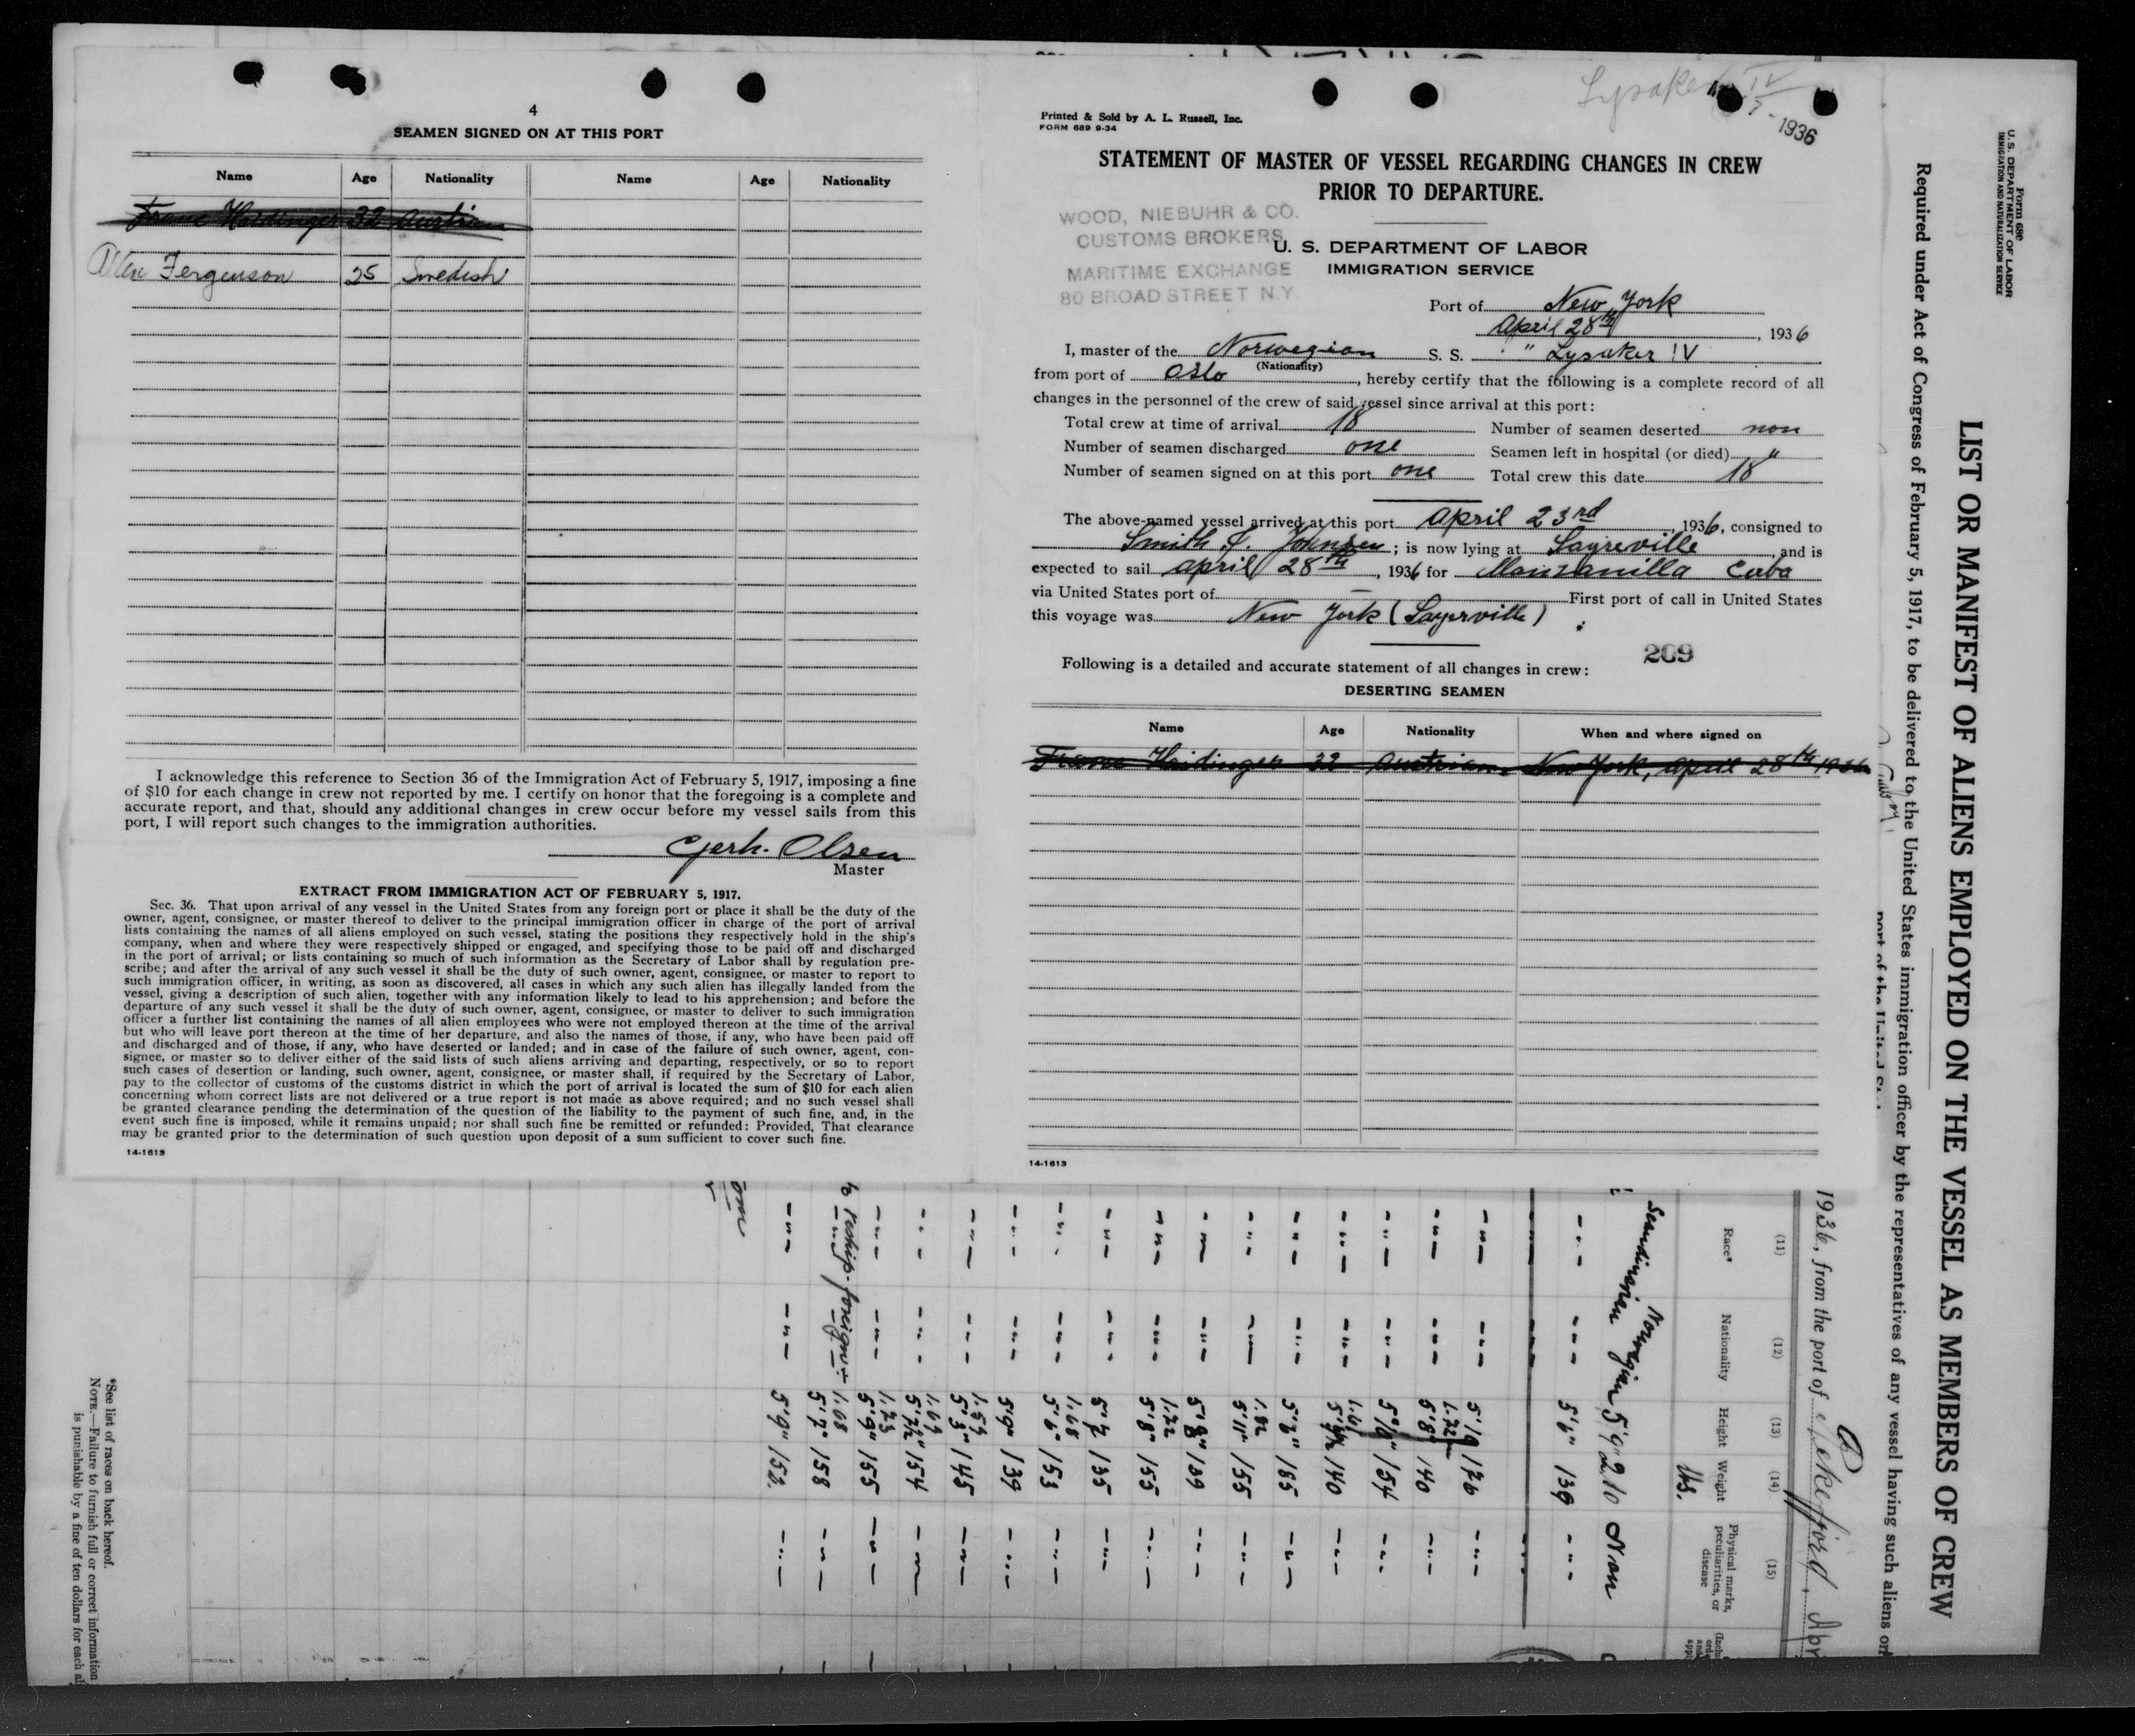 4
SEAMEN SIGNED ON AT THIS PORT
Name Age Nationality Name Age Nationality
Franc Haidinger 32 Austrian
Fergenson 25 Swedish
I acknowledge this reference to Section 36 of the Immigration Act of February 5, 1917, imposing a fine
of $10 for each change in crew not reported by me. I certify on honor that the foregoing is a complete and
accurate report, and that, should any additional changes in crew occur before my vessel sails from this
port, I will report such changes to the immigration authorities.
Gerh. Olsen
Master
EXTRACT FROM IMMIGRATION ACT OF FEBRUARY 5, 1917.
Sec. 36. That upon arrival of any vessel in the United States from any foreign port or place it shall be the duty of the
owner, agent, consignee, or master thereof to deliver to the principal immigration officer in charge of the port of arrival
lists containing the names of all aliens employed on such vessel, stating the positions they respectively hold in the ship's
company, when and where they were respectively shipped or engaged, and specifying those to be paid off and discharged
in the port of arrival; or lists containing so much of such information as the Secretary of Labor shall by regulation pre-
scribe; and after the arrival of any such vessel it shall be the duty of such owner, agent, consignee, or master to report to
such immigration officer, in writing, as soon as discovered, all cases in which any such alien has illegally landed from the
vessel, giving a description of such alien, together with any information likely to lead to his apprehension; and before the
departure of any such vessel it shall be the duty of such owner, agent, consignee, or master to deliver to such immigration
officer a further list containing the names of all alien employees who were not employed thereon at the time of the arrival
but who will leave port thereon at the time of her departure, and also the names of those, if any, who have been paid off
and discharged and of those, if any, who have deserted or landed; and in case of the failure of such owner, agent, con-
signee, or master so to deliver either of the said lists of such aliens arriving and departing, respectively, or so to report
such cases of desertion or landing, such owner, agent, consignee, or master shall, if required by the Secretary of Labor,
pay to the collector of customs of the customs district in which the port of arrival is located the sum of $10 for each alien
concerning whom correct lists are not delivered or a true report is not made as above required; and no such vessel shall
be granted clearance pending the determination of the question of the liability to the payment of such fine, and, in the
event such fine is imposed, while it remains unpaid; nor shall such fine be remitted or refunded: Provided, That clearance
may be granted prior to the determination of such question upon deposit of a sum sufficient to cover such fine.
14-1613
Lysaker IV
1936
Printed & Sold by A. L. Russell, Inc.
FORM 689 9-34
STATEMENT OF MASTER OF VESSEL REGARDING CHANGES IN CREW
PRIOR TO DEPARTURE.
WOOD, NIEBUHR & CO.
CUSTOMS BROKERS
MARITIME EXCHANGE
80 BROAD STREET N.Y.
U. S. DEPARTMENT OF LABOR
IMMIGRATION SERVICE
Port of New York
April 28th, 1936
I, master of the Norwegian S. S. " Lysaker IV
(Nationality)
from port of Oslo, hereby certify that the following is a complete record of all
changes in the personnel of the crew of said vessel since arrival at this port:
Total crew at time of arrival 18 Number of seamen deserted non
Number of seamen discharged one Seamen left in hospital (or died) "
Number of seamen signed on at this port one Total crew this date 18
The above-named vessel arrived at this port April 23rd, 1936, consigned to
Smith & Johnsen; is now lying at Sayreville, and is
expected to sail April 28th, 1936 for Manzanilla Cuba
via United States port of — First port of call in United States
this voyage was New York (Sayerville)
209
Following is a detailed and accurate statement of all changes in crew:
DESERTING SEAMEN
Name Age Nationality When and where signed on
Franc Haidinger 32 Austrian New York, April 28th 1936
14-1613
Form 680
U. S. DEPARTMENT OF LABOR
IMMIGRATION AND NATURALIZATION SERVICE
LIST OR MANIFEST OF ALIENS EMPLOYED ON THE VESSEL AS MEMBERS OF CREW
Required under Act of Congress of February 5, 1917, to be delivered to the United States immigration officer by the representatives of any vessel having such aliens on
1936, from the port of
(11) (12) (13) (14) (15)
Race* Nationality Height Weight Physical marks, peculiarities, or disease
lbs.
Scandinavien Norwegian 5'9" 210 Non
5'6" 139
5'9 176
1.72 5'8" 140
154
1.61 140
185
1.82 5'11" 155
5'8" 139
1.72 5'8" 155
135
1.68 5'6" 153
5'9" 139
1.59 5'3" 145
1.69 5'7½" 154
1.73 5'9" 155
to reship foreign
1.68 5'7" 158
5'9" 152
*See list of races on back hereof.
NOTE.—Failure to furnish full or correct information
is punishable by a fine of ten dollars for each al